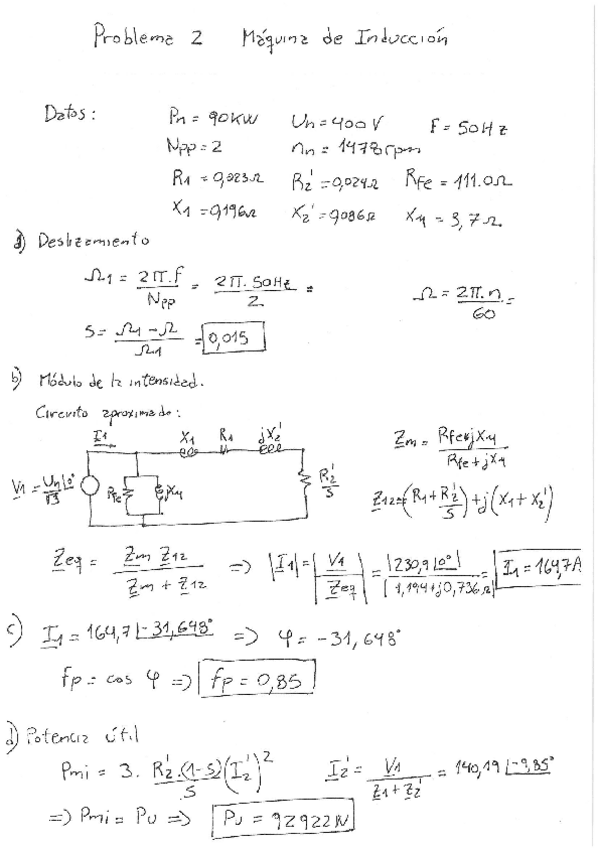 Problema 2 Máquina de Inducción
Datos: Pn = 90KW Un = 400V F = 50Hz
Npp = 2 nn = 1478rpm
R1 = 0,023Ω R2' = 0,024Ω Rfe = 111.0Ω
X1 = 0,196Ω X2' = 0,086Ω Xμ = 3,7Ω
a) Deslizamiento
Ω1 = 2π.f / Npp = 2π.50Hz / 2 = Ω = 2π.n / 60 =
S = Ω1 - Ω / Ω1 = 0,015
b) Módulo de la intensidad.
Circuito aproximado:
I1 X1 R1 jX2'
V1 = Un/√3 |0° Rfe jXμ R2'/S
Zm = Rfe·jXμ / Rfe + jXμ
Z12 = (R1 + R2'/S) + j(X1 + X2')
Zeq = Zm Z12 / Zm + Z12 => |I1| = |V1 / Zeq| = |230,9 |0°| / |1,194+j0,736Ω| = I1 = 164,7A
c) I1 = 164,7 |-31,648° => φ = -31,648°
fp = cos φ => fp = 0,85
d) Potencia útil
Pmi = 3. R2'.(1-S)/S (I2')² I2' = V1 / Z1 + Z2' = 140,19 |-9,85°
=> Pmi = Pu => Pu = 92922W